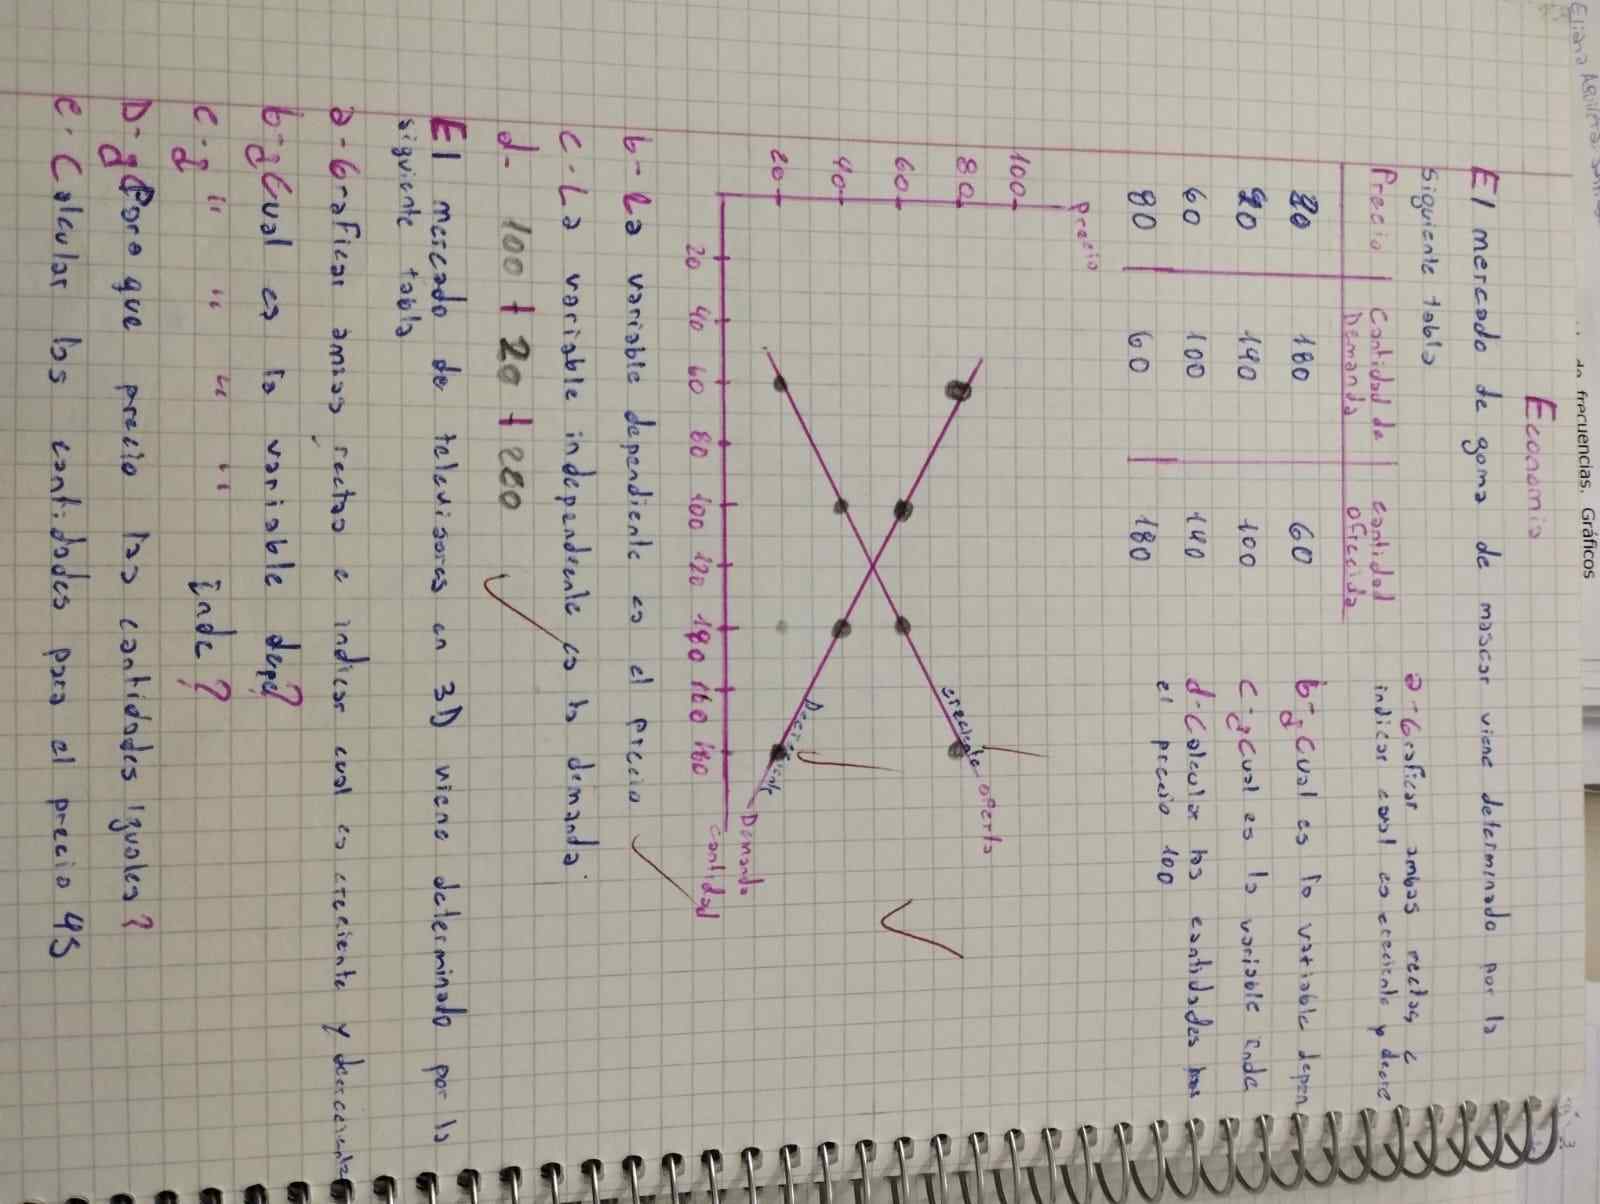 do frecuencias. Gráficos
Economia
El mercado de goma de mascar viene determinado por la
siguiente tabla
Precio | Cantidad de Demanda | Cantidad ofrecida
20 180 60
40 140 100
60 100 140
80 60 180
a-Graficar ambas rectas e
indicar cual es creciente y decre
b-¿Cual es la variable depen
c-¿Cual es la variable inde
d-Calcular las cantidades para
el precio 100
precio
100
80
60
40
20
20 40 60 80 100 120 140 160 180
creciente oferta
Decreciente
Demanda
cantidad
b- La variable dependiente es el precio
c-La variable independiente es la demanda.
d- 100 | 20 | 220
El mercado de televisores en 3D viene determinado por la
siguiente tabla
a-Graficar ambas rectas e indicar cual es creciente y decreciente
b-¿Cual es la variable depe?
c-¿ " " " " inde?
D-¿Para que precio las cantidades iguales?
e-Calcular las cantidades para el precio 45